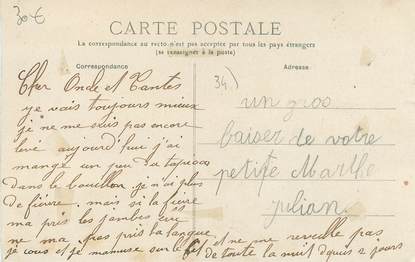 30€
CARTE POSTALE
La correspondance au recto n'est pas acceptée par tous les pays étrangers
(se renseigner à la poste)
Correspondance
Adresse
34)
Cher Oncle et Tantes
je vais toujours mieux
je ne me suis pas encore
levé aujourd'hui j'ai
mangé un peu d tapioca
dans le bouillon. je n'ai plus
de fièvre. mais si la fièvre
ma pris les jambes
ne ma pas pris la langue
je cous et je mamuse sur le lit et ne me reveille pas
de toute la nuit dpuis 2 jours
un gros
baiser de votre
petite Marthe
julian.